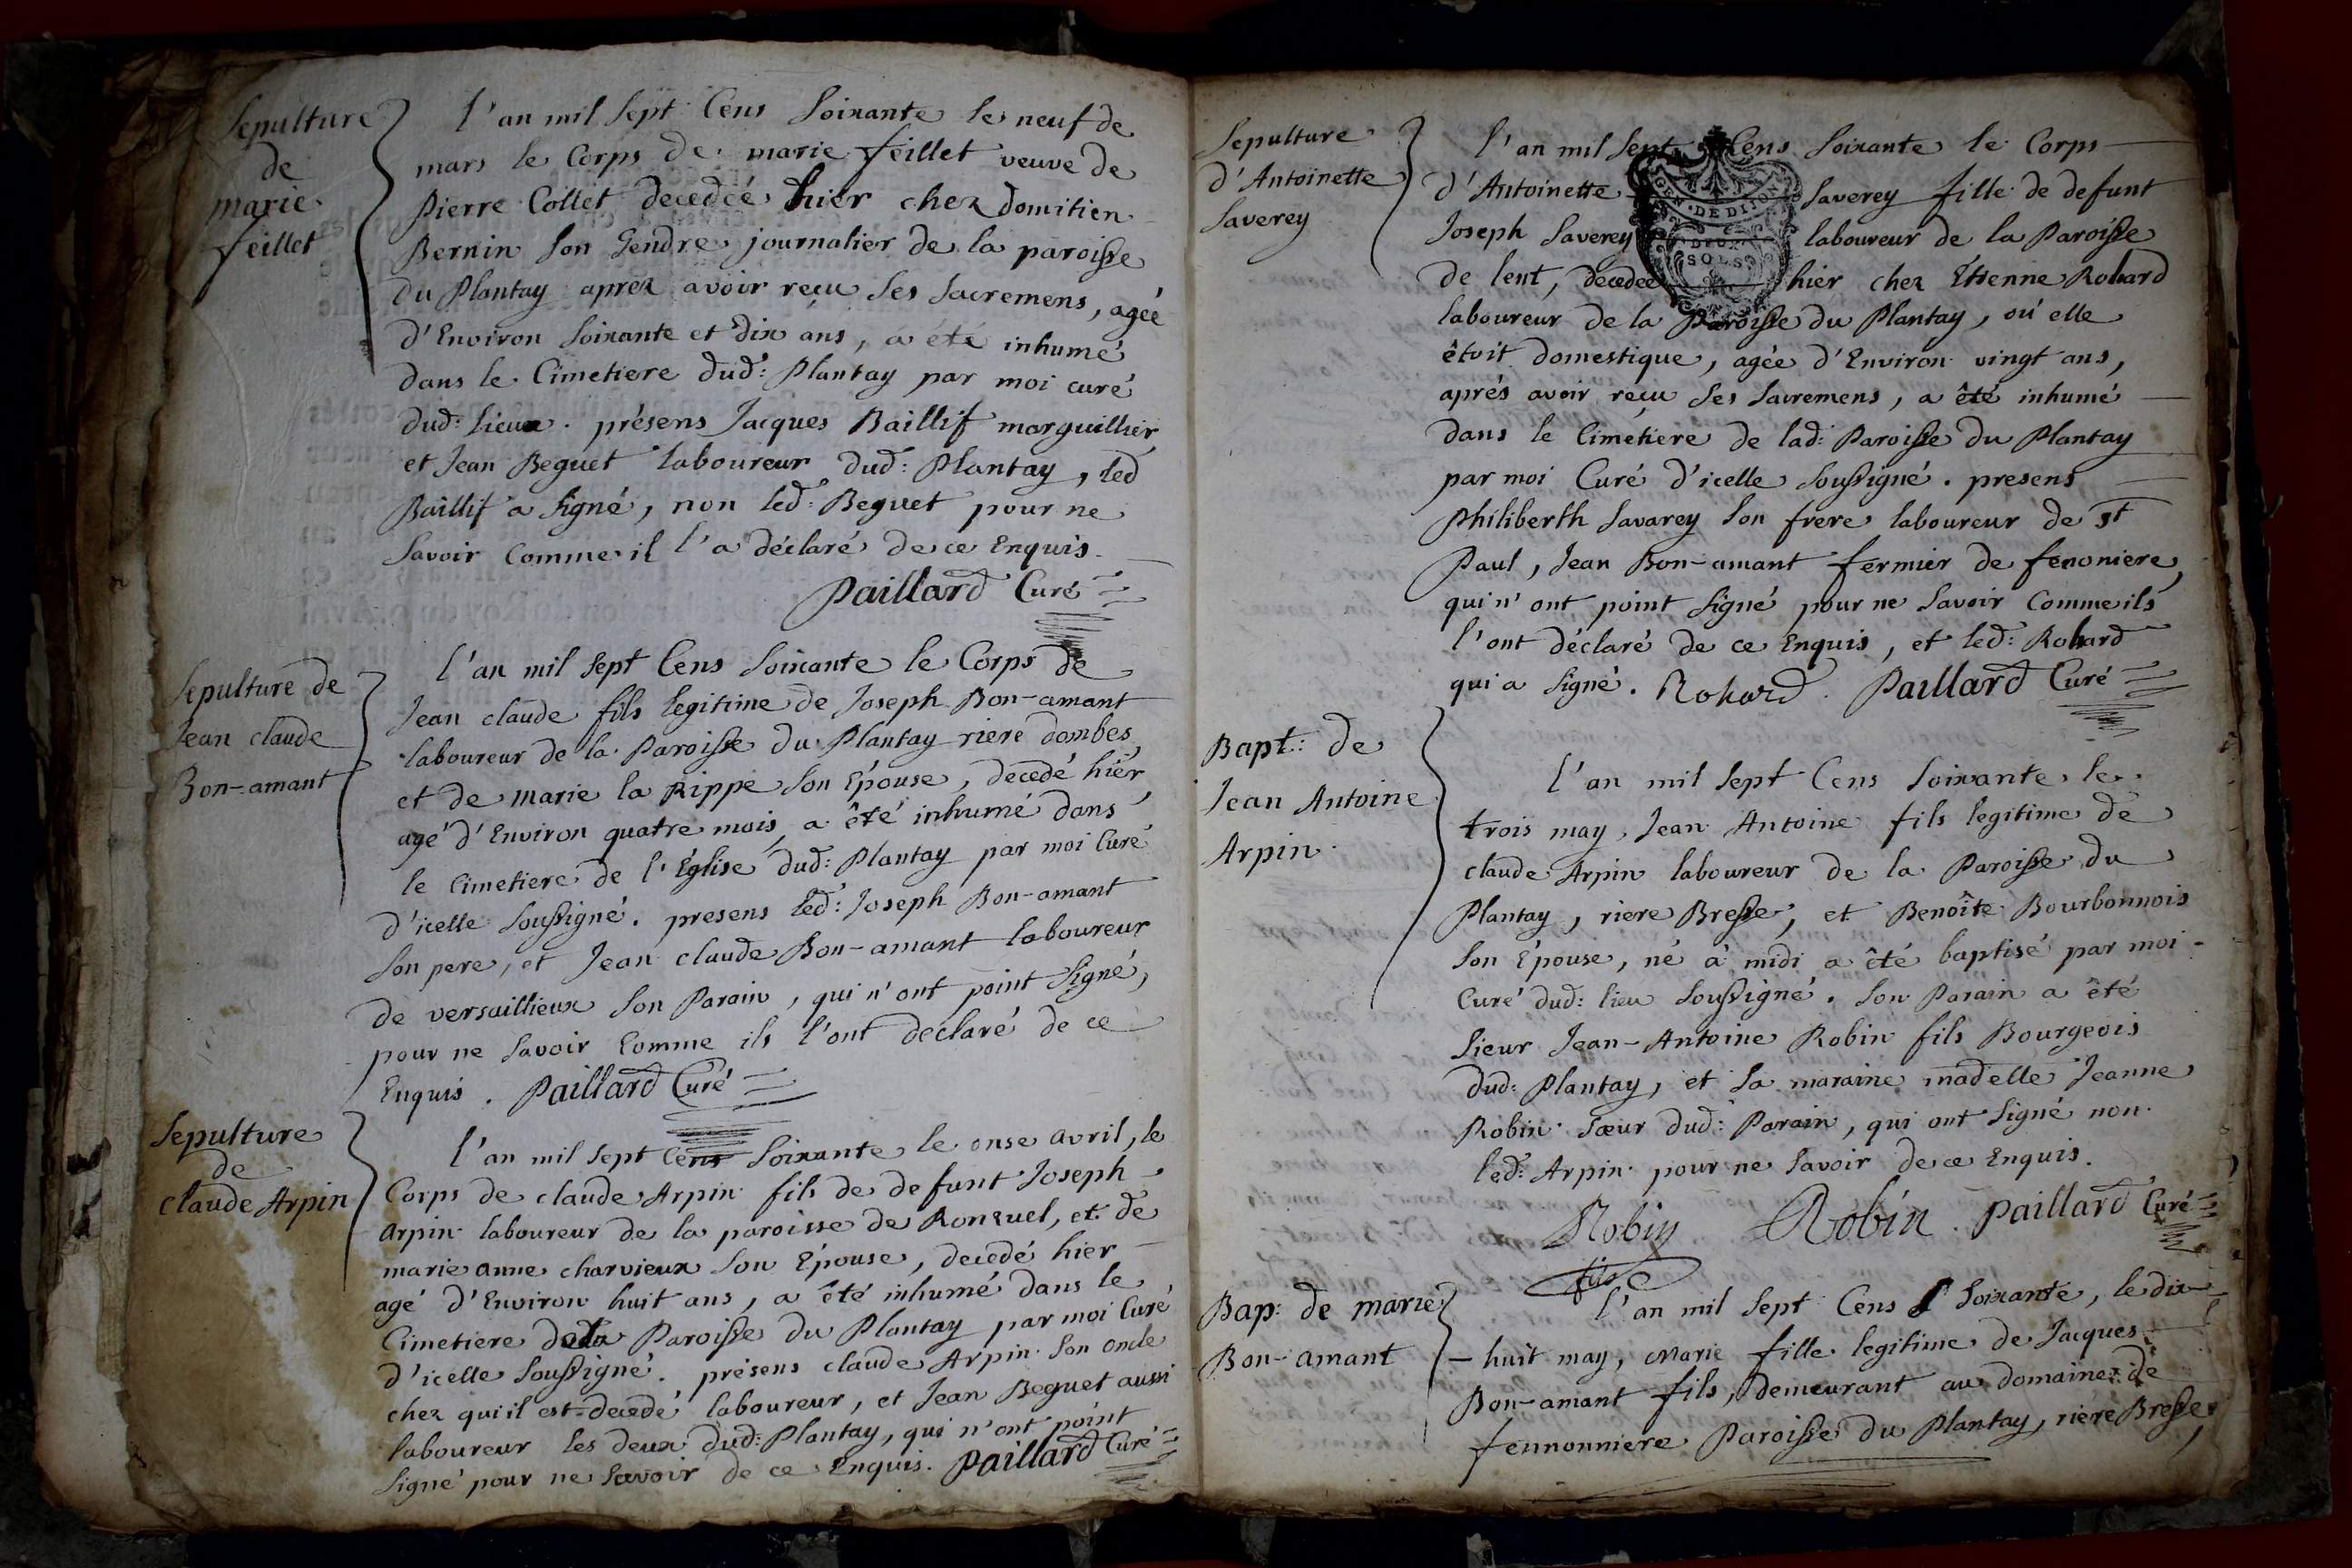 Sepulture
de
marie
feillet
l'an mil sept Cens soixante le neuf de
mars le Corps de marie feillet veuve de
Pierre Collet decedée hier chez domitien
Bernin son Gendre journalier de la paroisse
du Plantay aprez avoir reçu ses sacremens, agée
d'Environ soixante et dix ans, a été inhumé
dans le Cimetiere dud: Plantay par moi curé
dud: lieux. présens Jacques Baillif marguillier
et Jean Beguet laboureur dud: Plantay, led
Baillif a signé, non led: Beguet pour ne
savoir comme il l'a déclaré de ce Enquis.
Paillard Curé
Sepulture de
Jean claude
Bon-amant
l'an mil sept Cens soixante le Corps de
Jean claude fils legitime de Joseph Bon-amant
laboureur de la Paroisse du Plantay riere dombes
et de marie la Rippe son Epouse, decedé hier
agé d'Environ quatre mois a été inhumé dans
le Cimetiere de l'Eglise dud: Plantay par moi Curé
d'icelle soussigné. presens led: Joseph Bon-amant
son pere, et Jean claude Bon-amant laboureur
de versaillieux son Parain, qui n'ont point signé,
pour ne savoir Comme ils l'ont declaré de ce
Enquis. Paillard Curé
Sepulture
de
claude Arpin
l'an mil sept Cens soixante le onse avril, le
Corps de claude Arpin fils de defunt Joseph
Arpin laboureur de la paroisse de Ronzuel, et de
marie anne charvieux son Epouse, decedé hier
agé d'Environ huit ans, a été inhumé dans le
Cimetiere dela Paroisse du Plantay par moi Curé
d'icelle soussigné. présens claude Arpin son oncle
chez qui il est decedé laboureur, et Jean Beguet aussi
laboureur les deux dud: Plantay, qui n'ont point
signé pour ne savoir de ce Enquis. Paillard Curé
Sepulture
d'Antoinette
Saverey
l'an mil sept Cens soixante le Corps
d'Antoinette Saverey fille de defunt
Joseph Saverey laboureur de la Paroisse
de lent, decedée hier chez Etienne Robard
laboureur de la Paroisse du Plantay, où elle
êtoit domestique, agée d'Environ vingt ans,
aprés avoir reçu ses sacremens, a êté inhumé
dans le Cimetiere de lad: Paroisse du Plantay
par moi Curé d'icelle soussigné. presens
Philiberth Savarey son frere laboureur de st
Paul, Jean Bon-amant fermier de fenoniere,
qui n'ont point signé pour ne savoir Comme ils
l'ont déclaré de ce Enquis, et led: Robard
qui a signé. Robard. Paillard Curé
GEN. DE DIJON
DEUX
SOLS
Bapt: de
Jean Antoine
Arpin.
l'an mil sept Cens soixante le
trois may, Jean Antoine fils legitime de
claude Arpin laboureur de la Paroisse du
Plantay, riere Bresse, et Benoîte Bourbonnois
son Epouse, né à midi a êté baptisé par moi
Curé dud: lieu soussigné. son Parain a êté
sieur Jean-Antoine Robin fils Bourgeois
dud: Plantay, et sa maraine madelle Jeanne
Robin sœur dud: Parain, qui ont signé non
led: Arpin pour ne savoir de ce Enquis.
Robin Robin. Paillard Curé
fils
Bap: de marie
Bon-amant
l'an mil sept Cens soixante, le dix
- huit may, Marie fille legitime de Jacques
Bon-amant fils, demeurant au domaine de
fennonniere Paroisse du Plantay, riere Bresse,